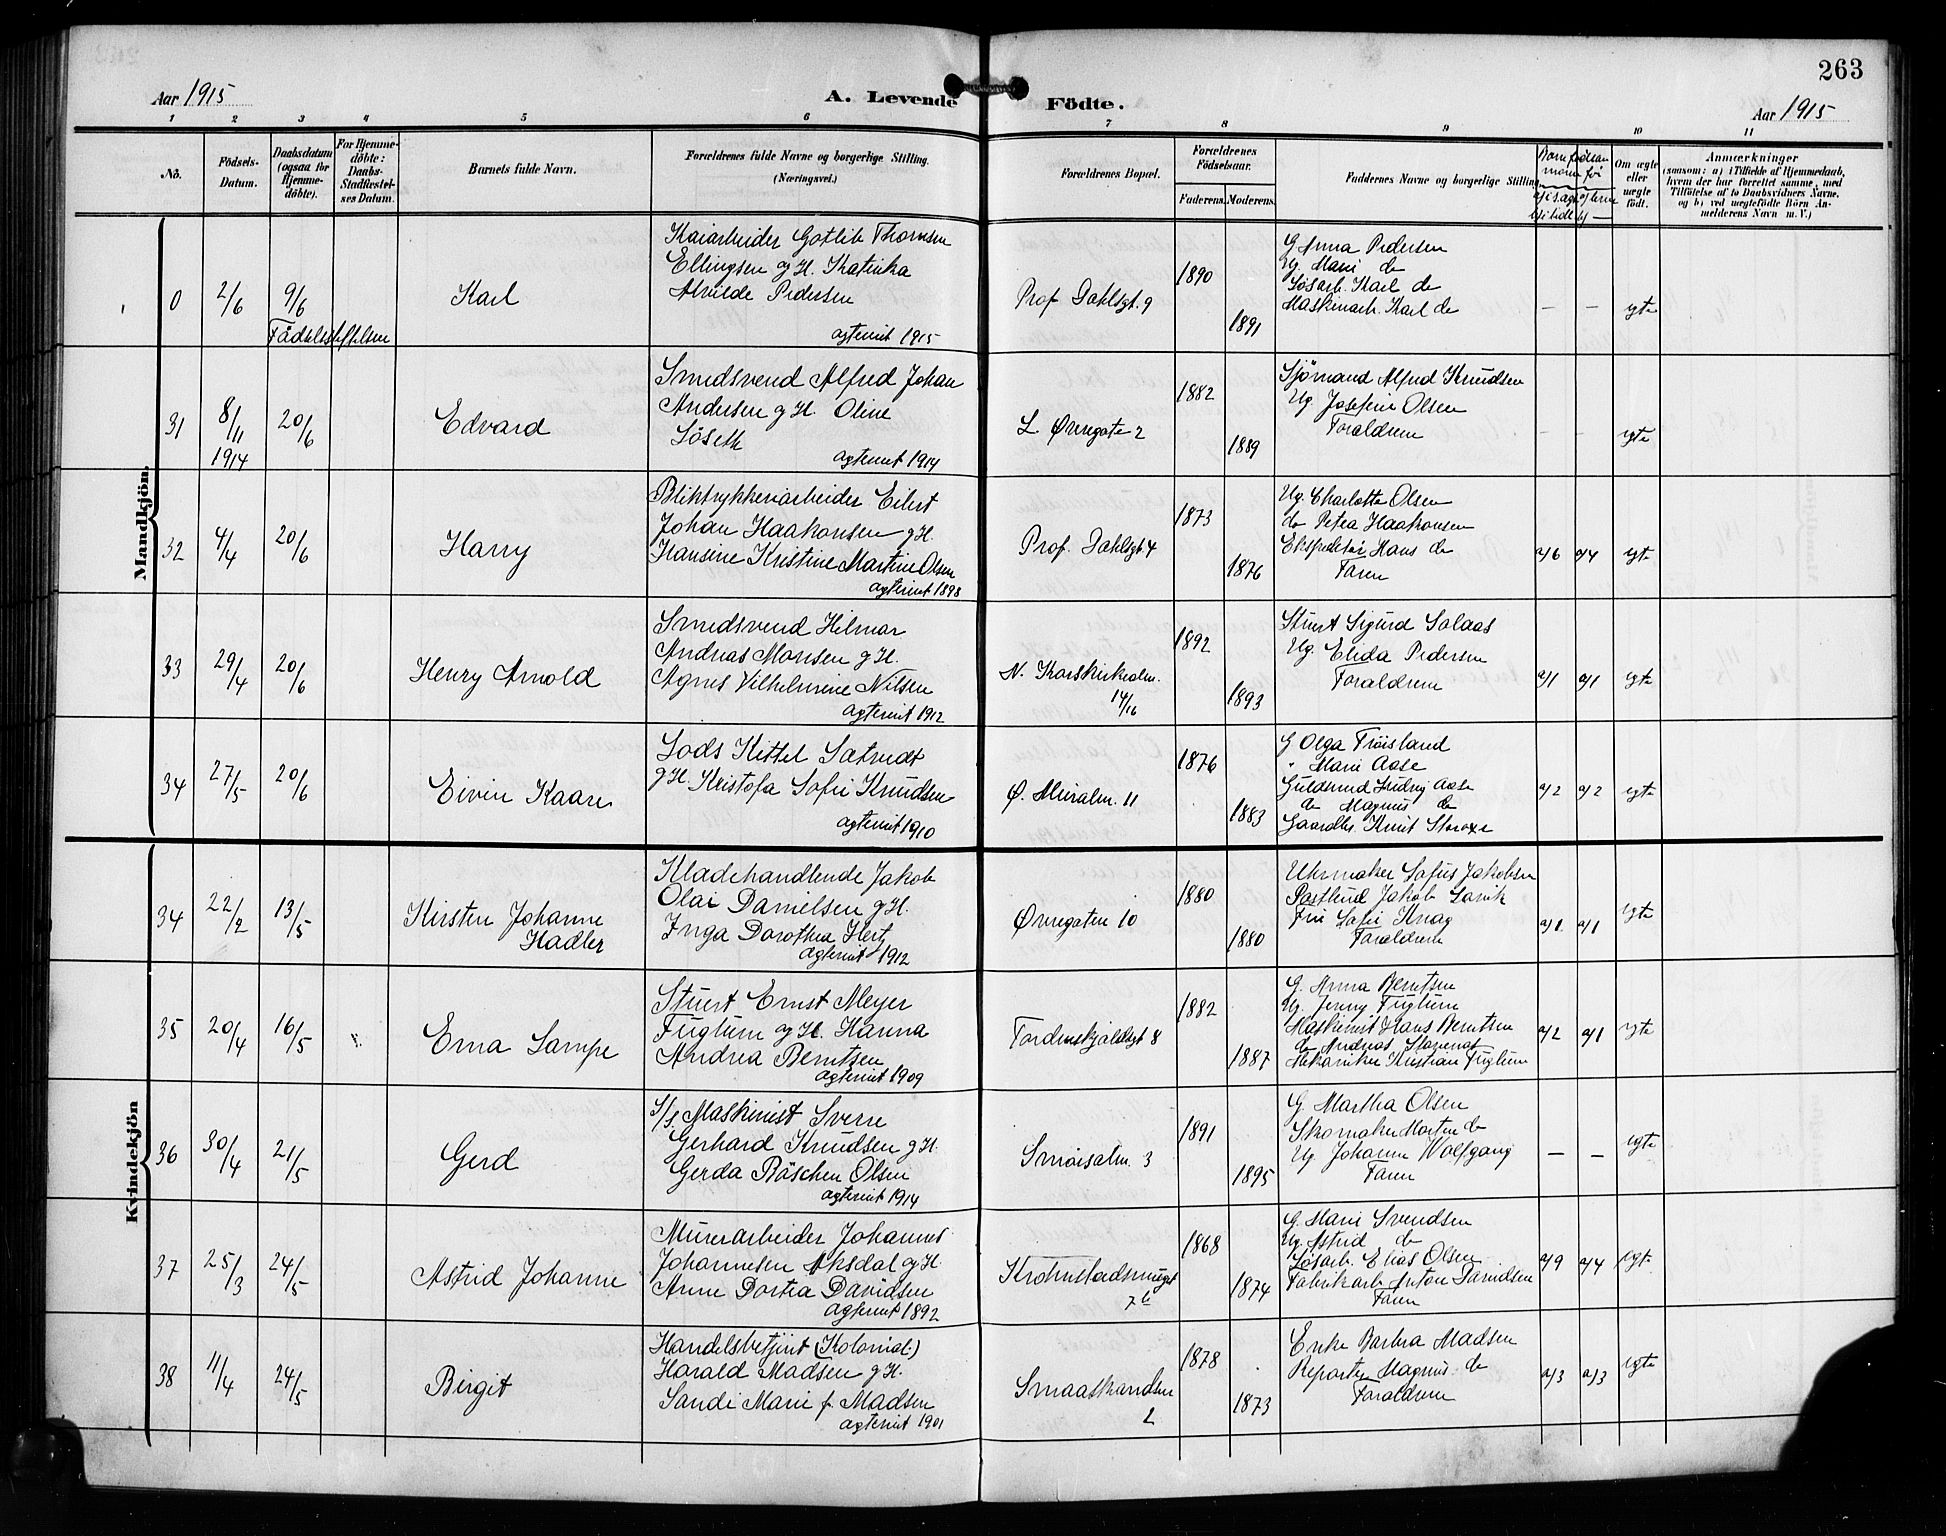 263
Aar 1915
A. Levende Födte.
Aar 1915
1 2 3 4 5 6 7 8 9 10 11
No.
Födsels-
Datum.
Daabsdatum
(ogsaa for
Hjemme-
döbte).
For Hjemme-
döbte:
Daabs-
Stadfæstel-
ses Datum.
Barnets fulde Navn.
Forældrenes fulde Navne og borgerlige Stilling.
(Næringsvei.)
Forældrenes Bopæl.
Forældrenes
Födselsaar.
Faderens. Moderens.
Faddernes Navne og borgerlige Stilling
Om ægte
eller
uægte
födt.
Anmærkninger
(saasom: a) i Tilfælde af Hjemmedaab,
hvem der har forrettet samme, med
Tilföielse af to Daabsvidners Navne,
og b) ved uægtefödte Börn An-
melderens Navn m. V.)
Mandkjön.
0
2/6
9/6
Fådselsstiftelsen
Karl
Kaiarbeider Gotlib Thomsen
Ellingsen og H. Katinka
Alvilde Pedersen
agteviet 1915
Prof Dahlsgt. 9
1890
1891
G Anna Pedersen
Ug. Marie do
Løsarb. Karl do
Maskinarb. Karl do
— —
egte
31
8/11
1914
20/6
Edvard
Smedsvend Alfred Johan
Andersen g H. Oline
Løseth
agteviet 1914
L. Øvregate 2
1882
1889
Sjømand Alfred Knudsen
Ug. Josefine Olsen
Foraldrene
- -
egte
32
4/4
20/6
Harry
Bliktrykkeriarbeider Eilert
Johan Haakonsen g H.
Hansine Kristine Martine Olsen
agteviet 1898
Prof. Dahlsgt 4
1873
1876
Ug. Charlotte Olsen
do Petra Haakonsen
Ekspeditør Hans do
Faren
a/6 a/4
egte
33
29/4
20/6
Henry Arnold
Smedsvend Hilmar
Andreas Monsen g H.
Agnes Vilhelmine Nilsen
agteviet 1912
N. Korskirkealm.
14/16
1892
1893
Stuert Sigurd Solaas
Ug. Elida Pedersen
Foraldrene
a/1 a/1
egte
34
27/5
20/6
Eivin Kaare
Lods Kittel Satrudt
g H. Kristofa Sofie Knudsen
agteviet 1910
Ø. Muralm. 11
1876
1883
G Olga Trøisland
" Marie Aase
Guldsmed Aase
do Magnus do
Gaardbr. Knut
a/2 a/2
egte
Kvindekjön
34
22/2
13/5
Kirsten Johanne
Hadler
Kladehandlende Jakob
Olai Danielsen g H.
Inga Dorothea Hert
agteviet 1912
Øvregaten 10
1880
1880
Uhrmaker Sofus Jakobsen
Postbud Jakob
Fru Sofie Knag
Foraldrene
a/1 a/1
egte
35
20/4
16/5
Erna Lampe
Stuert Ernst Meyer
Fuglum og H. Hanna
Andrea Berntsen
agteviet 1909
Tordenskjoldsgt 8
1882
1887
G. Anna Berntsen
Ug Jenny Fuglum
Maskinist Hans Berntsen
do Andreas
Mekaniker Kristian Fuglum
a/2 a/1
egte
36
30/4
21/5
Gerd
S/s. Maskinist Sverre
Gerhard Knudsen g H.
Gerda Bøschen Olsen
agteviet 1914
Smørsalm. 3
1891
1895
G. Martha Olsen
Skomaker Morten do
Ug Johanne Wolfgang
Faren
— —
egte
37
25/3
24/5
Astrid Johanne
Murerarbeider Johannes
Johannesen Aksdal og H.
Anne Dortea Davidsen
agteviet 1892
Krohnstadsmuget
7b
1868
1874
G. Marie Svendsen
Ug. Astrid do
Løsarb. Elias Olsen
Fabrikarb Anton Davidsen
Faren
a/9 a/4
egte
38
11/4
24/5
Birgit
Handelsbetjent (Kolonial.)
Harald Madsen g H.
Sandi Marie f. Madsen
agteviet 1901
Smaastrandsn
2
1878
1873
Enke Barbra Madsen
Reporter Magnus do
Foraldrene
a/3 a/3
egte